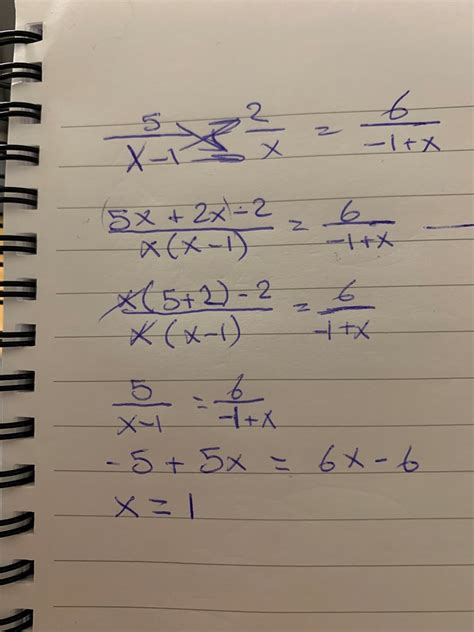 5/(x-1) 2/x = 6/(-1+x)
(5x + 2x) - 2 / x(x-1) = 6/(-1+x) —
x(5+2) - 2 / x(x-1) = 6/(-1+x)
5/(x-1) = 6/(-1+x)
-5 + 5x = 6x - 6
x = 1